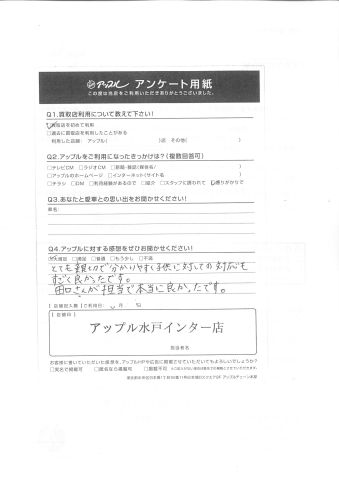 アップル アンケート用紙
この度は当店をご利用いただきありがとうございました。
Q1.買取店利用について教えて下さい!
買取店を初めて利用
□過去に買取店を利用したことがある
利用した店舗: アップル( )店 その他( )
Q2.アップルをご利用になったきっかけは?(複数回答可)
□テレビCM □ラジオCM □新聞・雑誌(媒体名/ )
□アップルのホームページ □インターネット(サイト名 )
□チラシ □DM □利用経験があるので □紹介 □スタッフに誘われて 通りがかりで
Q3.あなたと愛車との思い出をお聞かせください!
車名:
Q4.アップルに対する感想をぜひお聞かせください!
大満足 □満足 □普通 □もう少し □不満
とても親切で分かりやすく子供に対しての対応も
すごく良かったです。
田口さんが担当で本当に良かったです。
[店舗記入欄] ご利用日: 月
[店舗印]
アップル水戸インター店
担当者名:
お客様に書いていただいた感想を、アップルHPや広告に掲載させていただいてもよろしいでしょうか?
□実名で掲載可 □匿名なら掲載可 □掲載不可